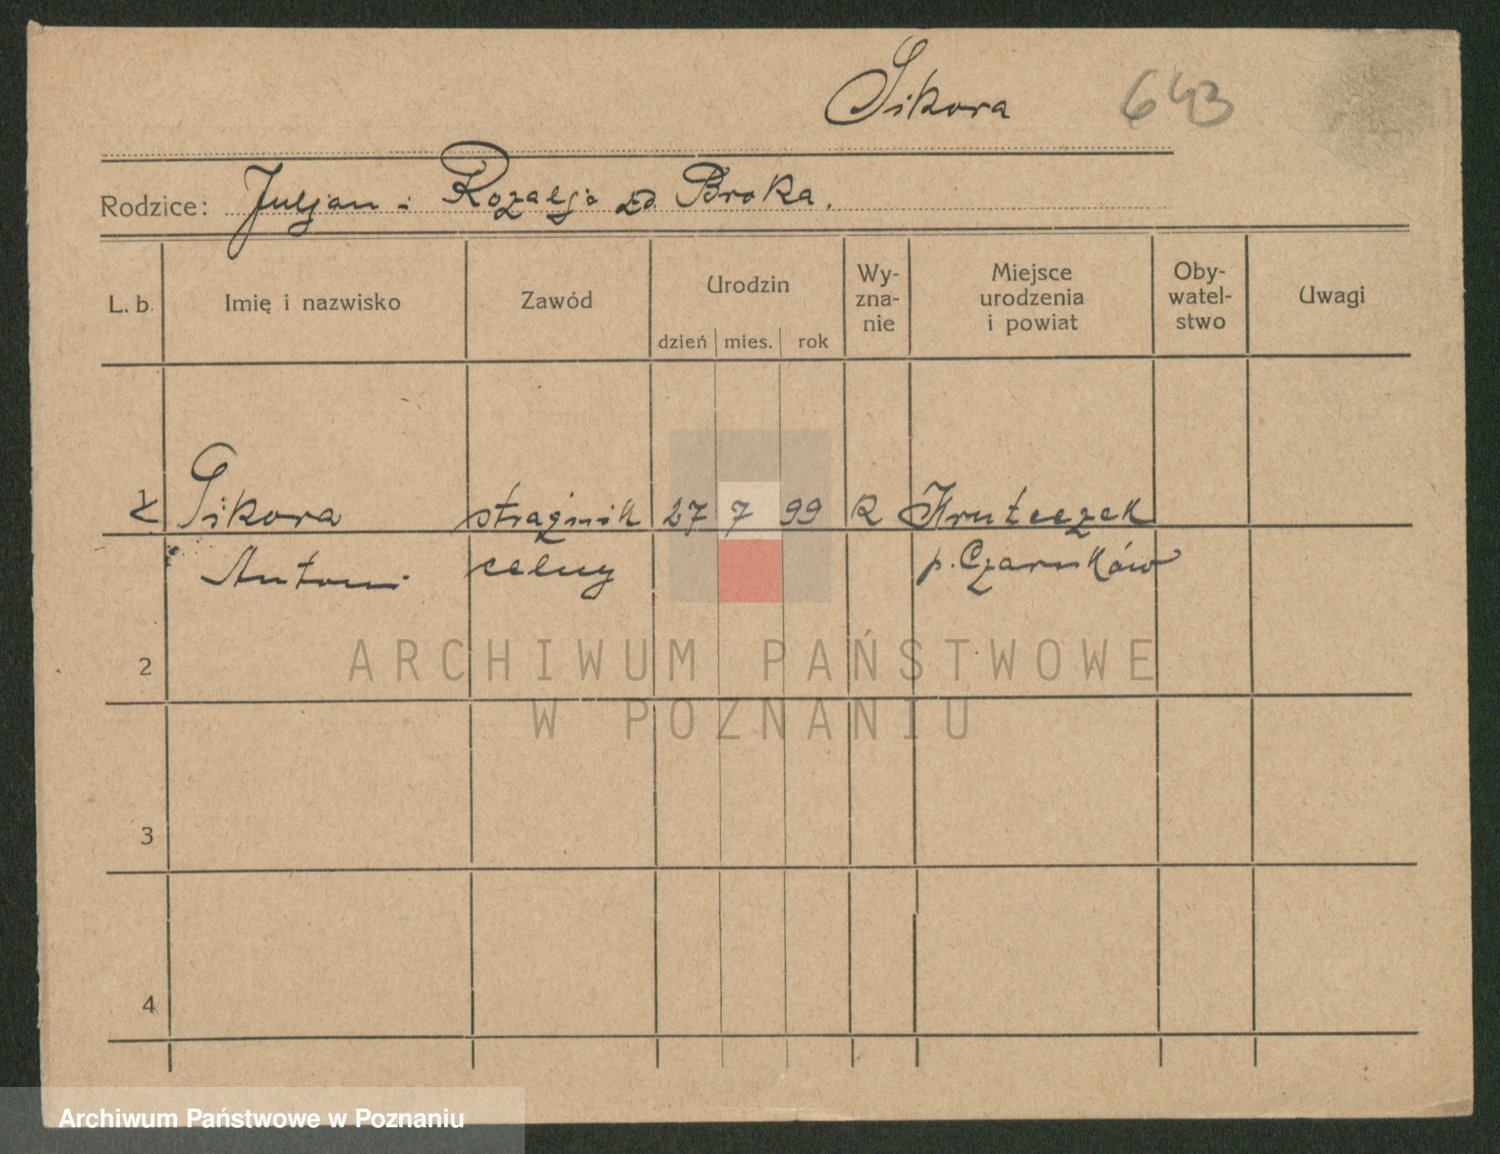 Sikora 643
Rodzice: Juljan i Rozalja zd. Broka.
L. b. Imię i nazwisko Zawód Urodzin dzień mies. rok Wy-zna-nie Miejsce urodzenia i powiat Oby-watel-stwo Uwagi
1 Sikora strażnik 27 7 99 R Hruteczek
Antoni celny p. Czarnków
2
ARCHIWUM PAŃSTWOWE
W POZNANIU
3
4
Archiwum Państwowe w Poznaniu